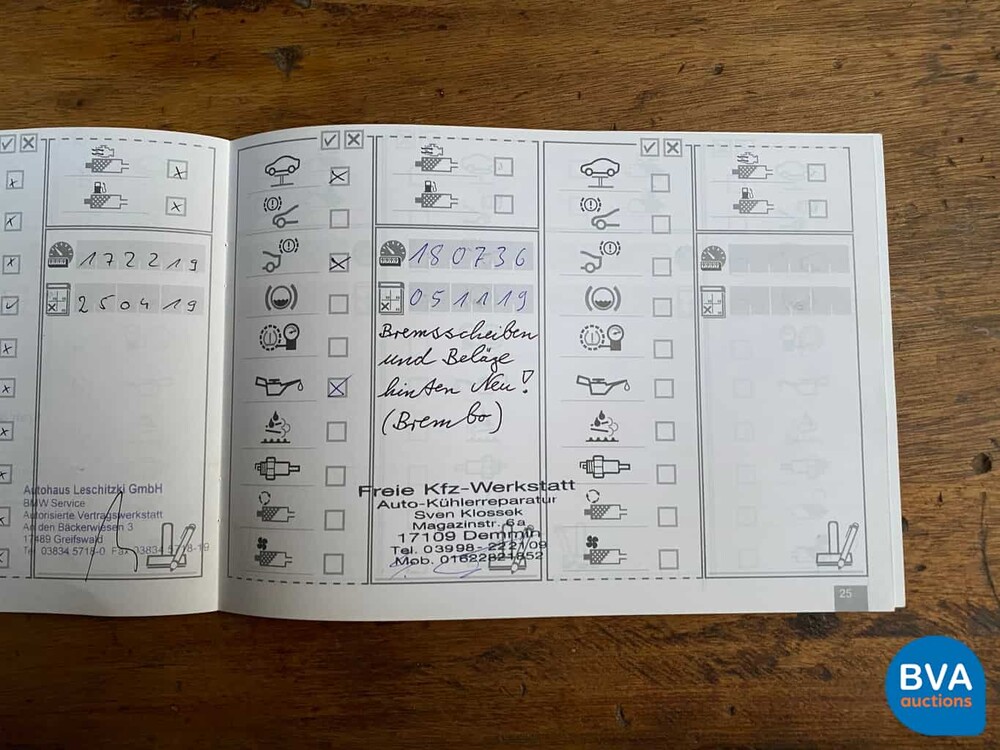 172219
250419
Autohaus Leschitzki GmbH
BMW Service
Autorisierte Vertragswerkstatt
An den Bäckerwiesen 3
17489 Greifswald
Tel. 03834 5718-0 Fax 03834 5718-19
180736
051119
Bremsscheiben
und Beläge
hinten Neu!
(Brembo)
Freie Kfz-Werkstatt
Auto-Kühlerreparatur
Sven Klossek
Magazinstr. 6a
17109 Demmin
Tel. 03998-222709
Mob.
25
BVA
auctions